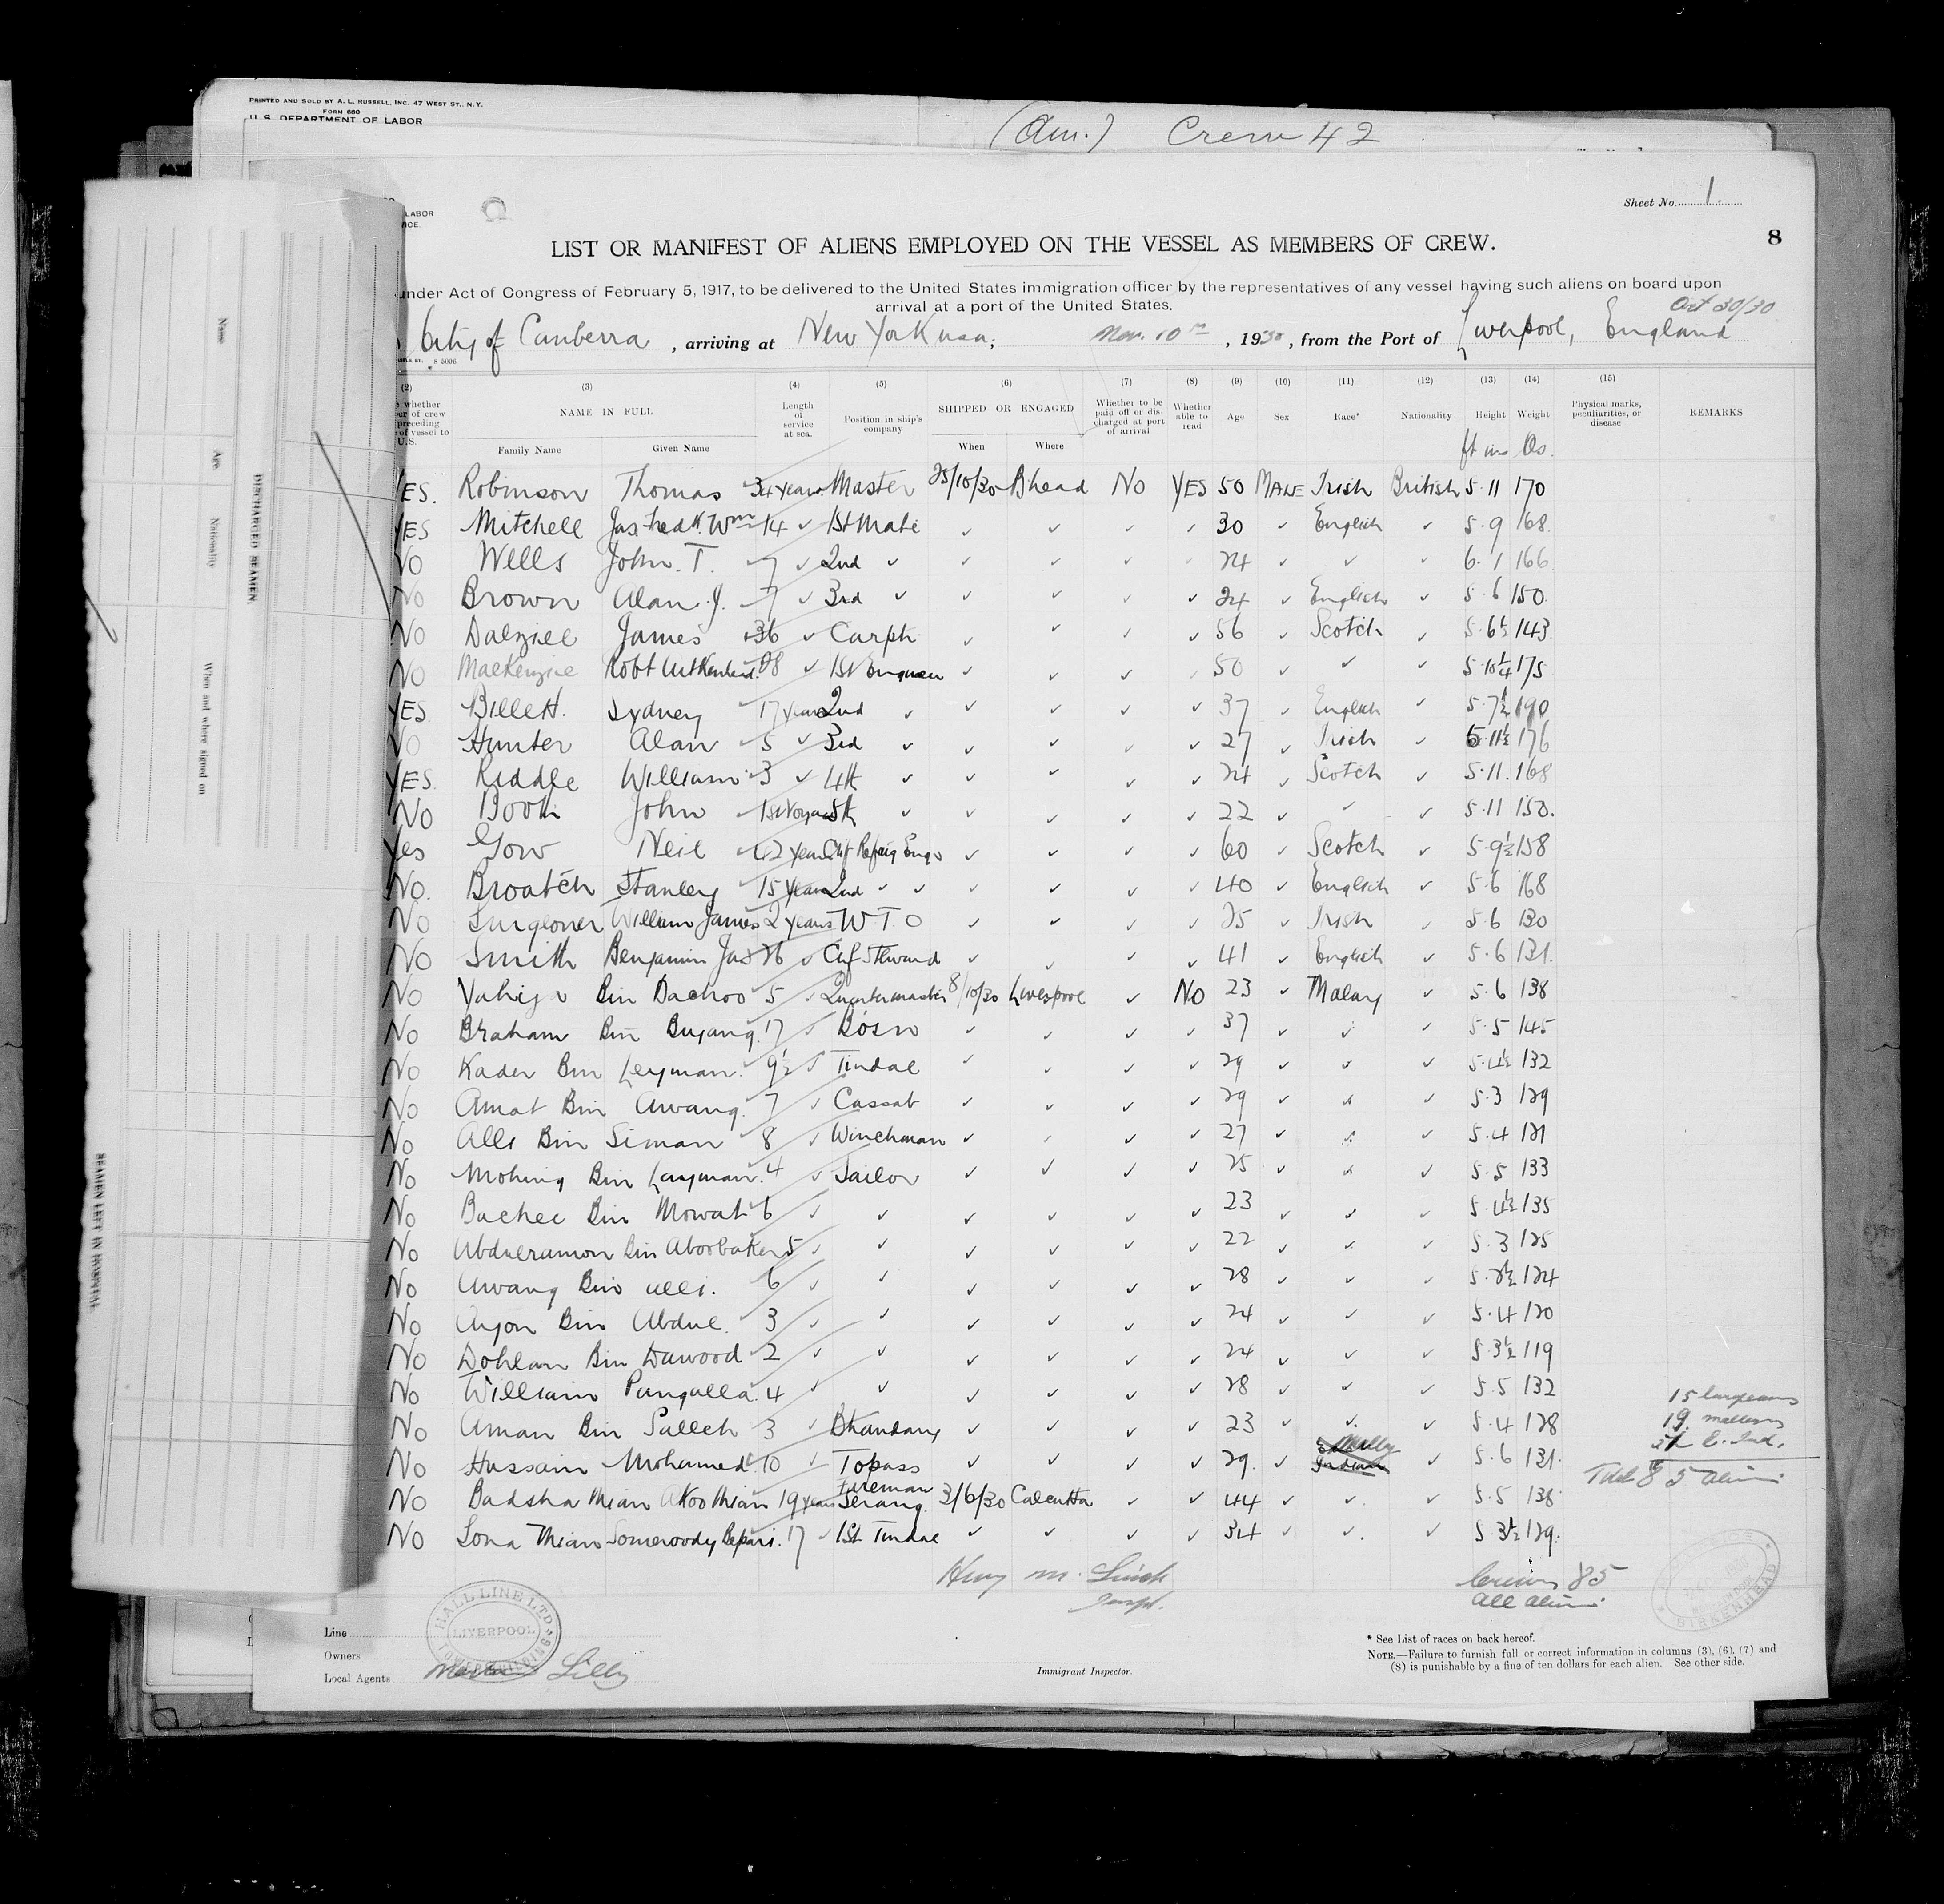 PRINTED AND SOLD BY A. L. RUSSELL, INC. 47 WEST ST., N.Y.
FORM 680
U. S. DEPARTMENT OF LABOR
Crew 42
LABOR
ICE.
Sheet No. 1.
LIST OR MANIFEST OF ALIENS EMPLOYED ON THE VESSEL AS MEMBERS OF CREW.
8
under Act of Congress of February 5, 1917, to be delivered to the United States immigration officer by the representatives of any vessel having such aliens on board upon
arrival at a port of the United States.
Oct 30/30
City of Canberra, arriving at New York usa; Nov. 10th, 1930, from the Port of Liverpool, England
S 5006
(2) (3) (4) (5) (6) (7) (8) (9) (10) (11) (12) (13) (14) (15)
whether
er of crew
preceding
of vessel to
U.S.
NAME IN FULL
Family Name Given Name
Length of service at sea.
Position in ship's company
SHIPPED OR ENGAGED
When Where
Whether to be paid off or discharged at port of arrival
Whether able to read
Age Sex Race* Nationality Height Weight
Physical marks, peculiarities, or disease
REMARKS
ft ins lbs.
YES. Robinson Thomas 34 years Master 25/10/30 Bhead No YES 50 MALE Irish British 5.11 170
YES Mitchell Wm 14 ✓ 1st Mate ✓ ✓ ✓ ✓ 30 ✓ English ✓ 5.9 168
NO Wells John. T. 7 ✓ 2nd ✓ ✓ ✓ ✓ ✓ 24 ✓ ✓ ✓ 6.1 166
NO Brown Alan. J. 7 ✓ 3rd ✓ ✓ ✓ ✓ ✓ 24 ✓ English ✓ 5.6 150
NO Dalziel James 36 ✓ Carptr ✓ ✓ ✓ ✓ 56 ✓ Scotch ✓ 5.6½ 143
NO MacKenzie Robt 28 ✓ 1st Engineer ✓ ✓ ✓ ✓ 50 ✓ ✓ ✓ 5.10¼ 175
YES Billett. Sydney 17 years 2nd ✓ ✓ ✓ ✓ ✓ 37 ✓ English ✓ 5.7½ 190
NO Hunter Alan 5 ✓ 3rd ✓ ✓ ✓ ✓ ✓ 27 ✓ Irish ✓ 5.11½ 176
YES. Riddle William 3 ✓ 4th ✓ ✓ ✓ ✓ ✓ 24 ✓ Scotch ✓ 5.11. 168
NO Booth John 1st Voyage 5th ✓ ✓ ✓ ✓ ✓ 22 ✓ ✓ ✓ 5.11 150.
Yes Gow Neil 42 years Chf Refrig Engr ✓ ✓ ✓ ✓ 60 ✓ Scotch ✓ 5.9½ 158
NO. Broatch Stanley 15 years 2nd ✓ ✓ ✓ ✓ ✓ ✓ 40 ✓ English ✓ 5.6 168
NO Surgeoner William James 2 years W.T.O ✓ ✓ ✓ ✓ 25 ✓ Irish ✓ 5.6 130
NO Smith Benjamin Jas 26 ✓ Chf Steward ✓ ✓ ✓ ✓ 41 ✓ English ✓ 5.6 131.
NO Bin Dachoo 5 ✓ Quartermaster 8/10/30 Liverpool ✓ No 23 ✓ Malay ✓ 5.6 138
NO Braham Bin Buyang. 17 ✓ Bosn ✓ ✓ ✓ ✓ 37 ✓ ✓ ✓ 5.5 145
NO Kader Bin Leyman. 9½ ✓ Tindal ✓ ✓ ✓ ✓ 29 ✓ ✓ ✓ 5.4½ 132
NO Amat Bin Awang. 7 ✓ Cassab ✓ ✓ ✓ ✓ 29 ✓ ✓ ✓ 5.3 129
NO Alli Bin Siman 8 ✓ Winchman ✓ ✓ ✓ ✓ 27 ✓ ✓ ✓ 5.4 121
NO Mohing Bin Layman. 4 ✓ Sailor ✓ ✓ ✓ ✓ 25 ✓ ✓ ✓ 5.5 133
NO Bachee Bin Mowat 6 ✓ ✓ ✓ ✓ ✓ ✓ 23 ✓ ✓ ✓ 5.4½ 135
NO Abdulramon Bin Aboobaker 5 ✓ ✓ ✓ ✓ ✓ ✓ 22 ✓ ✓ ✓ 5.3 125
NO Awang Bin Alli. 6 ✓ ✓ ✓ ✓ ✓ ✓ 28 ✓ ✓ ✓ 5.2½ 124
NO Bin Abdul. 3 ✓ ✓ ✓ ✓ ✓ ✓ 24 ✓ ✓ ✓ 5.4 120
NO Dohlan Bin Dawood 2 ✓ ✓ ✓ ✓ ✓ ✓ 24 ✓ ✓ ✓ 5.3½ 119
NO William Pungalla. 4 ✓ ✓ ✓ ✓ ✓ ✓ 28 ✓ ✓ ✓ 5.5 132
NO Aman Bin Salleh 3 ✓ Bhandary ✓ ✓ ✓ ✓ 23 ✓ ✓ ✓ 5.4 128
NO Hussain Mohamed 10 ✓ Topass ✓ ✓ ✓ ✓ 29. ✓ Indian ✓ 5.6 131.
NO Badsha Mian Akoo Mian 19 years Fireman Serang. 3/6/30 Calcutta ✓ ✓ 44 ✓ ✓ ✓ 5.5 138
NO Sona Mian Bepari. 17 ✓ 1st Tindal ✓ ✓ ✓ ✓ 34 ✓ ✓ ✓ 5 3½ 129.
15
19
E. Ind.
Total 85 aliens
Henry M.
Insp.
Crew 85
All aliens
HALL LINE LTD
LIVERPOOL
TOWER BUILDING
BIRKENHEAD
Line
Owners
Local Agents
Immigrant Inspector.
* See List of races on back hereof.
NOTE.—Failure to furnish full or correct information in columns (3), (6), (7) and
(8) is punishable by a fine of ten dollars for each alien. See other side.
Name
Age
Nationality
When and where signed on
DISCHARGED SEAMEN.
SEAMEN LEFT IN HOSPITAL